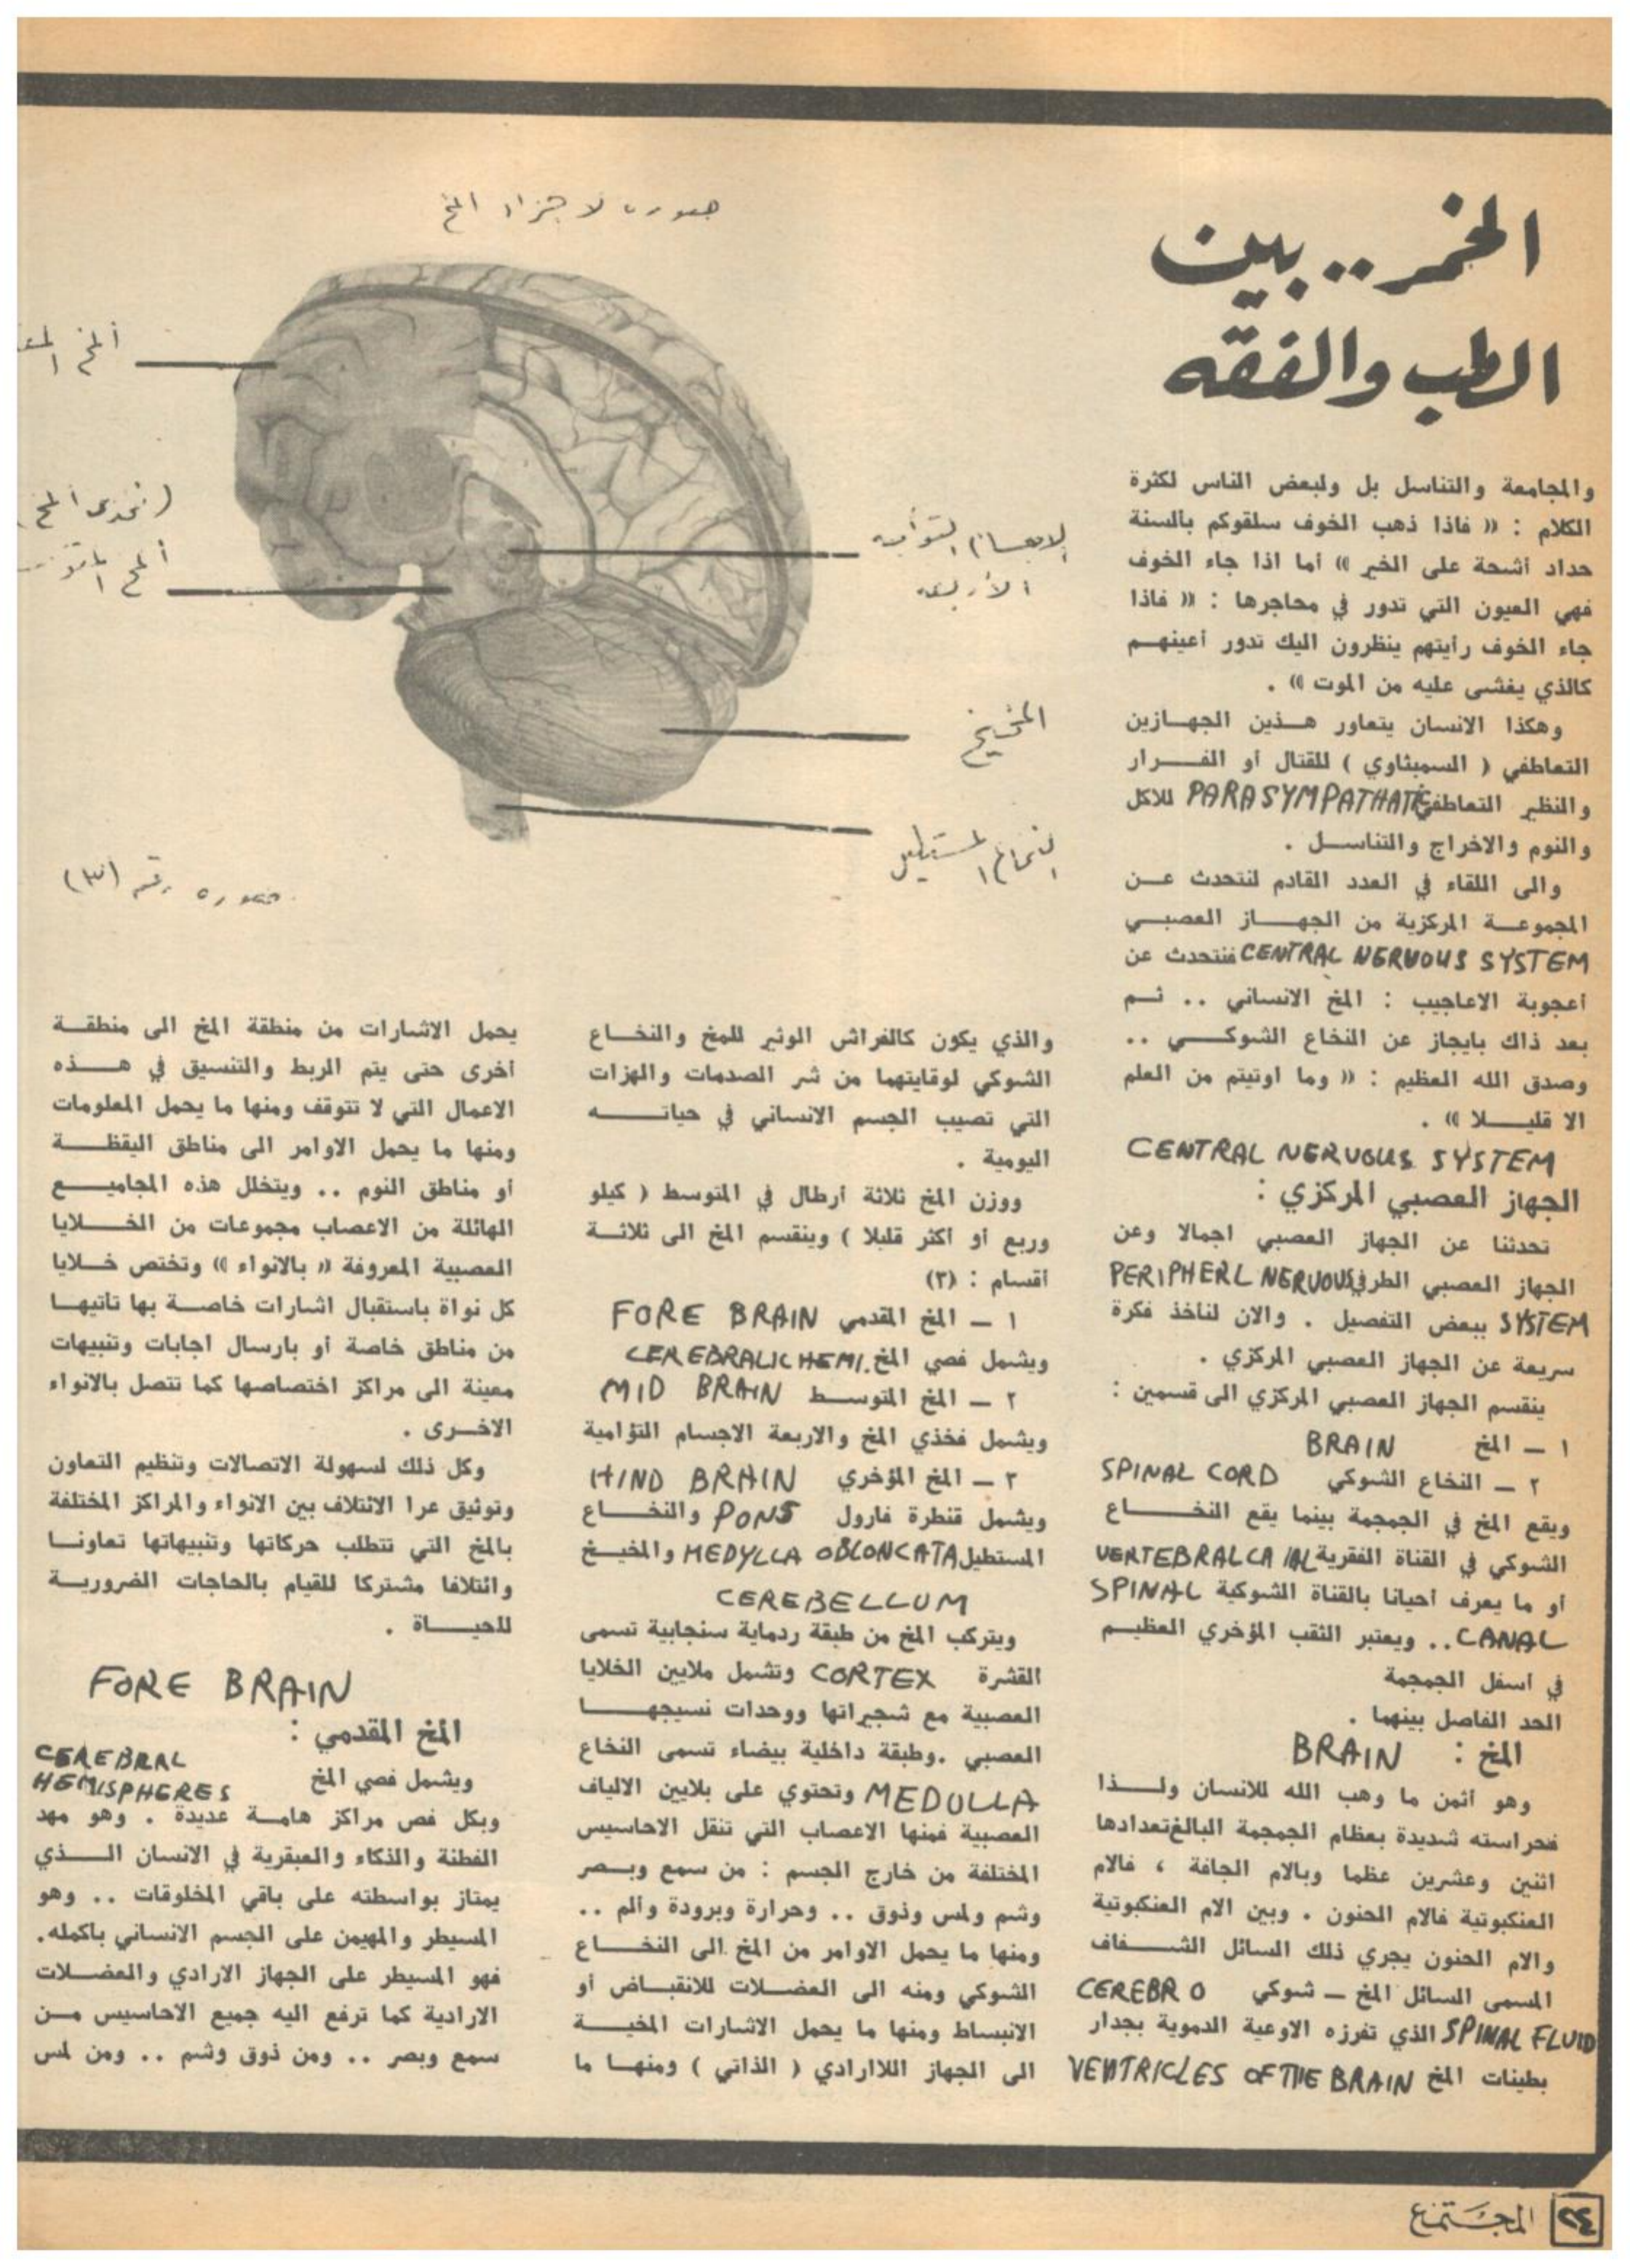 الخمر .. بين
الطب والفقه
صورة لاجزاء المخ
ألمخ
(فخذى المخ)
ألمخ
الاجسام التوأمية
الأربعة
المخيخ
النخاع المستطيل
صورة رقم (٣)
والمجامعة والتناسل بل ولبعض الناس لكثرة
الكلام : « فاذا ذهب الخوف سلقوكم بألسنة
حداد أشحة على الخير » أما اذا جاء الخوف
فهي العيون التي تدور في محاجرها : « فاذا
جاء الخوف رأيتهم ينظرون اليك تدور أعينهم
كالذي يغشى عليه من الموت » .
وهكذا الانسان يتعاور هذين الجهازين
التعاطفي ( السمبثاوي ) للقتال أو الفرار
والنظير التعاطفي PARASYMPATHATIC للاكل
والنوم والاخراج والتناسل .
والى اللقاء في العدد القادم لنتحدث عن
المجموعة المركزية من الجهاز العصبي
CENTRAL NERVOUS SYSTEM فنتحدث عن
أعجوبة الاعاجيب : المخ الانساني .. ثم
بعد ذاك بايجاز عن النخاع الشوكي ..
وصدق الله العظيم : « وما اوتيتم من العلم
الا قليلا » .
CENTRAL NERVOUS SYSTEM
الجهاز العصبي المركزي :
تحدثنا عن الجهاز العصبي اجمالا وعن
الجهاز العصبي الطرفي PERIPHERL NERVOUS
SYSTEM ببعض التفصيل . والان لنأخذ فكرة
سريعة عن الجهاز العصبي المركزي .
ينقسم الجهاز العصبي المركزي الى قسمين :
١ ــ المخ BRAIN
٢ ــ النخاع الشوكي SPINAL CORD
ويقع المخ في الجمجمة بينما يقع النخاع
الشوكي في القناة الفقرية VERTEBRAL CA IAL
أو ما يعرف أحيانا بالقناة الشوكية SPINAL
CANAL .. ويعتبر الثقب المؤخري العظيم
في أسفل الجمجمة
الحد الفاصل بينهما .
المخ : BRAIN
وهو أثمن ما وهب الله للانسان ولذا
فحراسته شديدة بعظام الجمجمة البالغ تعدادها
اثنين وعشرين عظما وبالام الجافة ، فالام
العنكبوتية فالام الحنون . وبين الام العنكبوتية
والام الحنون يجري ذلك السائل الشفاف
المسمى السائل المخ ــ شوكي CEREBRO
SPINAL FLUID الذي تفرزه الاوعية الدموية بجدار
بطينات المخ VENTRICLES OF THE BRAIN
والذي يكون كالفراش الوثير للمخ والنخاع
الشوكي لوقايتهما من شر الصدمات والهزات
التي تصيب الجسم الانساني في حياته
اليومية .
ووزن المخ ثلاثة أرطال في المتوسط ( كيلو
وربع أو أكثر قليلا ) وينقسم المخ الى ثلاثة
أقسام : (٣)
١ ــ المخ المقدمي FORE BRAIN
ويشمل فصي المخ CEREBRALIC HEMI.
٢ ــ المخ المتوسط MID BRAIN
ويشمل فخذي المخ والاربعة الاجسام التؤامية
٣ ــ المخ المؤخري HIND BRAIN
ويشمل قنطرة فارول PONS والنخاع
المستطيل MEDYLLA OBLONCATA والمخيخ
CEREBELLUM
ويتركب المخ من طبقة ردماية سنجابية تسمى
القشرة CORTEX وتشمل ملايين الخلايا
العصبية مع شجيراتها ووحدات نسيجها
العصبي .وطبقة داخلية بيضاء تسمى النخاع
MEDULLA وتحتوي على بلايين الالياف
العصبية فمنها الاعصاب التي تنقل الاحاسيس
المختلفة من خارج الجسم : من سمع وبصر
وشم ولمس وذوق .. وحرارة وبرودة وألم ..
ومنها ما يحمل الاوامر من المخ الى النخاع
الشوكي ومنه الى العضلات للانقباض أو
الانبساط ومنها ما يحمل الاشارات المخية
الى الجهاز اللاارادي ( الذاتي ) ومنها ما
يحمل الاشارات من منطقة المخ الى منطقة
أخرى حتى يتم الربط والتنسيق في هذه
الاعمال التي لا تتوقف ومنها ما يحمل المعلومات
ومنها ما يحمل الاوامر الى مناطق اليقظة
أو مناطق النوم .. ويتخلل هذه المجاميع
الهائلة من الاعصاب مجموعات من الخلايا
العصبية المعروفة « بالانواء » وتختص خلايا
كل نواة باستقبال اشارات خاصة بها تأتيها
من مناطق خاصة أو بارسال اجابات وتنبيهات
معينة الى مراكز اختصاصها كما تتصل بالانواء
الاخرى .
وكل ذلك لسهولة الاتصالات وتنظيم التعاون
وتوثيق عرا الائتلاف بين الانواء والمراكز المختلفة
بالمخ التي تتطلب حركاتها وتنبيهاتها تعاونا
وائتلافا مشتركا للقيام بالحاجات الضرورية
للحياة .
FORE BRAIN
المخ المقدمي :
ويشمل فصي المخ CEREBRAL HEMISPHERES
وبكل فص مراكز هامة عديدة . وهو مهد
الفطنة والذكاء والعبقرية في الانسان الذي
يمتاز بواسطته على باقي المخلوقات .. وهو
المسيطر والمهيمن على الجسم الانساني بأكمله.
فهو المسيطر على الجهاز الارادي والعضلات
الارادية كما ترفع اليه جميع الاحاسيس من
سمع وبصر .. ومن ذوق وشم .. ومن لمس
٢٤ المجتمع